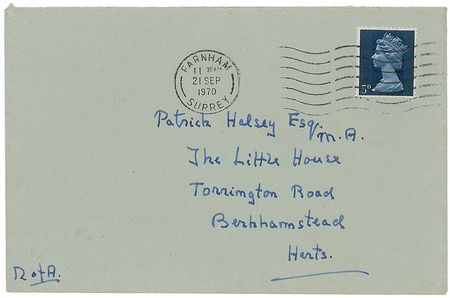 FARNHAM
11 30AM
21 SEP
1970
SURREY
5D
Patrick Halsey Esq. M.A.
The Little House
Torrington Road
Berkhamstead
Herts.
R of A.